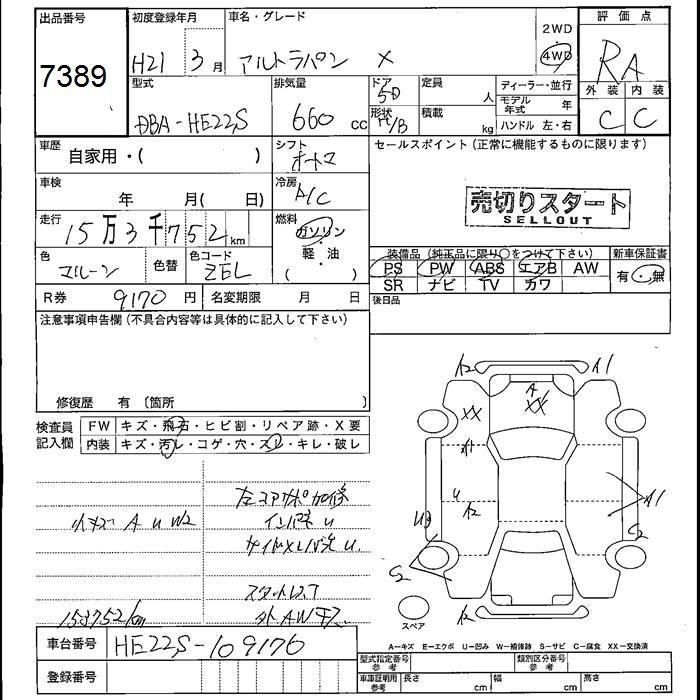 出品番号
初度登録年月
車名・グレード
評価点
7389
H21 3月
アルトラパン X
2WD
4WD
RA
型式
排気量
ドア
定員
ディーラー・並行
外装
内装
DBA-HE22S
660 cc
5D
人
モデル年式 年
形状
H/B
積載
kg
ハンドル 左・右
C
C
車歴
自家用・( )
シフト
オートマ
セールスポイント(正常に機能するものに限ります)
車検
年 月( 日)
冷房
A/C
売切りスタート
SELLOUT
走行
15万3千752km
燃料
ガソリン
軽・油
( )
色
マルーン
色替
色コード
ZEL
装備品(純正品に限り○をつけて下さい)
新車保証書
PS PW ABS エアB AW
有・無
SR ナビ TV カワ
R券
9170円
名変期限 月 日
後日品
注意事項申告欄(不具合内容等は具体的に記入して下さい)
修復歴 有〔箇所 〕
検査員
記入欄
FW
キズ・飛石・ヒビ割・リペア跡・X要
内装
キズ・汚レ・コゲ・穴・スレ・キレ・破レ
A2
A1
XX
A
XX
A1
U
A2
A1
U3
S2
S2
A2
スペア
小キズ A U W2
左コアサポ加修
インパネ U
サイドメンバ先 U.
スタットレス
外AW
153752km
車台番号
HE22S-109176
登録番号
A=キズ E=エクボ U=凹み W=補修跡 S=サビ C=腐食 XX=交換済
型式指定番号
参考
類別区分番号
参考
車庫証明用
参考
長さ cm
幅 cm
高さ cm